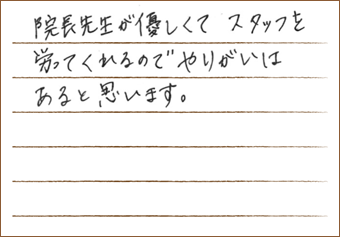 院長先生が優しくて スタッフを
労ってくれるので やりがいは
あると思います。